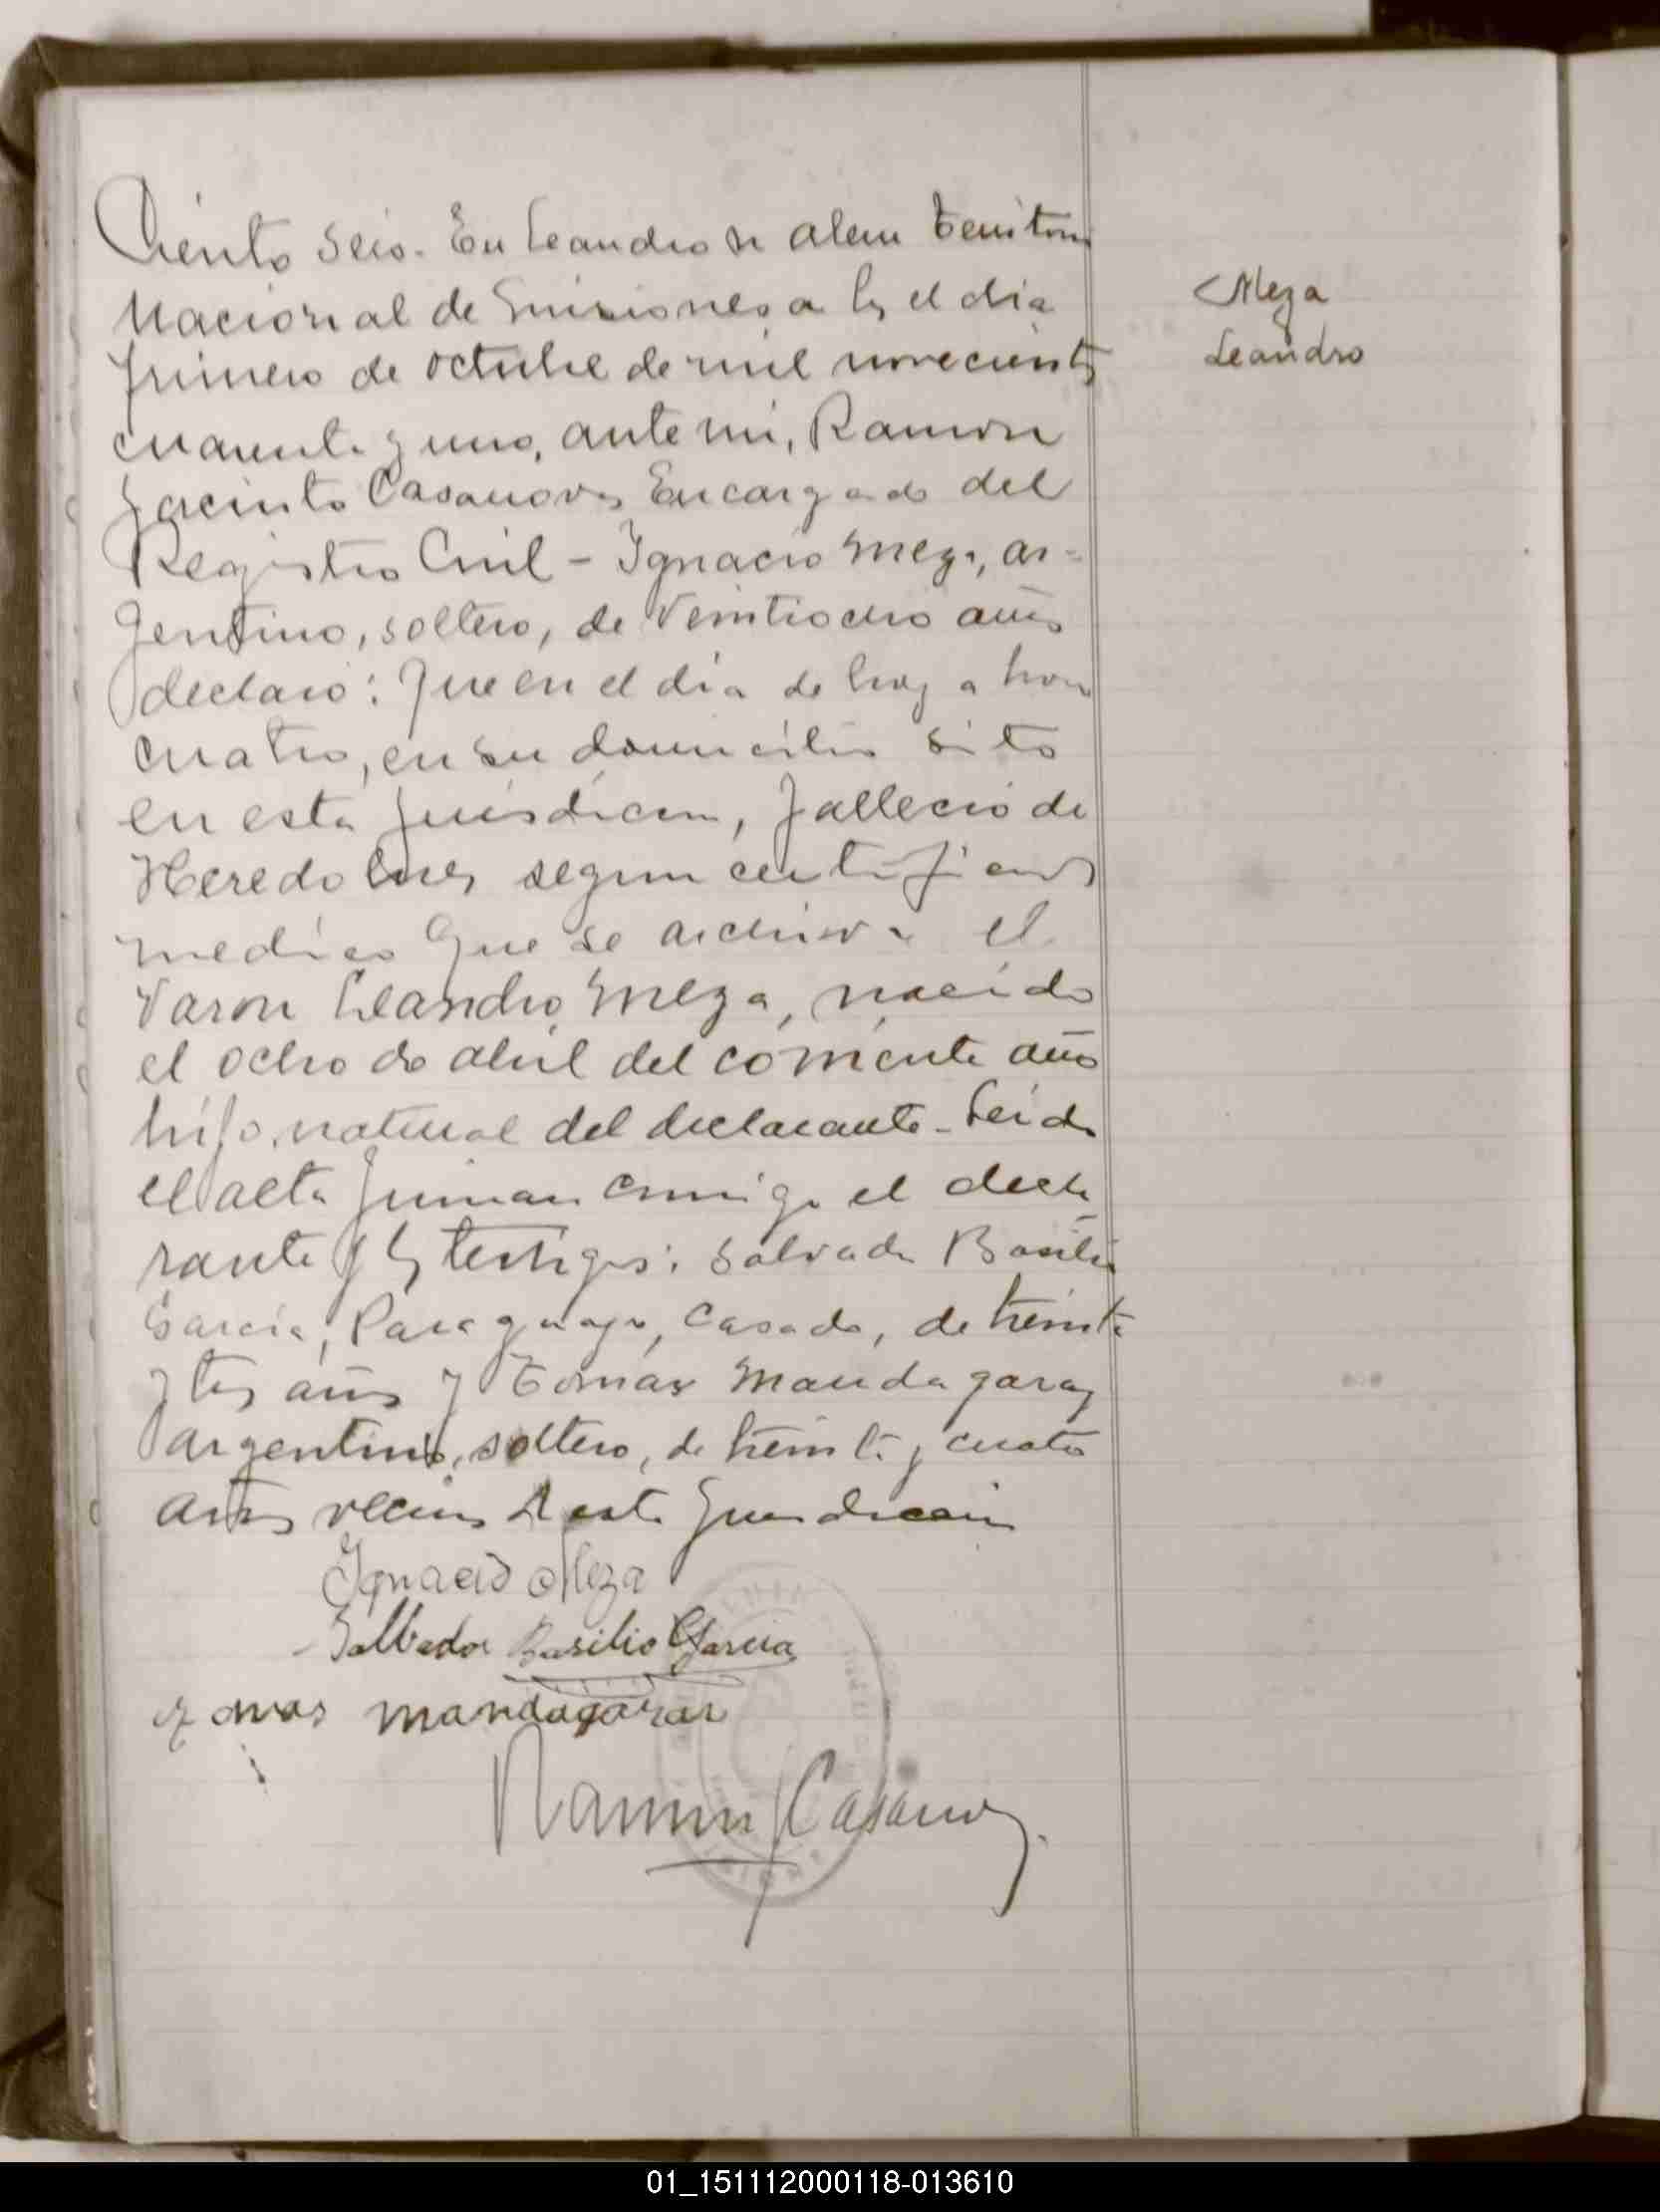 Ciento seis. En Leandro N Alem Territorio
Nacional de Misiones a los el dia
primero de octubre de mil novecientos
cuarenta y uno, ante mi, Ramon
Jacinto Casanova Encargado del
Registro Civil - Ignacio Meza, ar=
gentino, soltero, de veintiocho años
declaro: Que en el dia de hoy a hora
cuatro, en su domicilio sito
en esta jurisdiccion, fallecio de
Heredo lues segun certificado
medico que se archiva el
varon Leandro Meza, nacido
el ocho de abril del corriente año
hijo natural del declarante - Leida
el acta firman conmigo el decla
rante y los testigos: Salvador Basilio
Garcia, Paraguayo, casado, de treinta
y tres años y Tomas Mandagaray
argentino, soltero, de treinta y cuatro
años vecinos de esta jurisdiccion
Ignacio Meza
Salbador Basilio Garcia
tomas mandagarai
Ramon J Casanova
Meza
Leandro
01_151112000118-013610